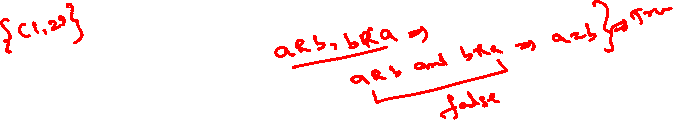 {(1,2)}
aRb, bR̸a ⇒
aRb and bRa ⇒ a=b} ⇒ True
false